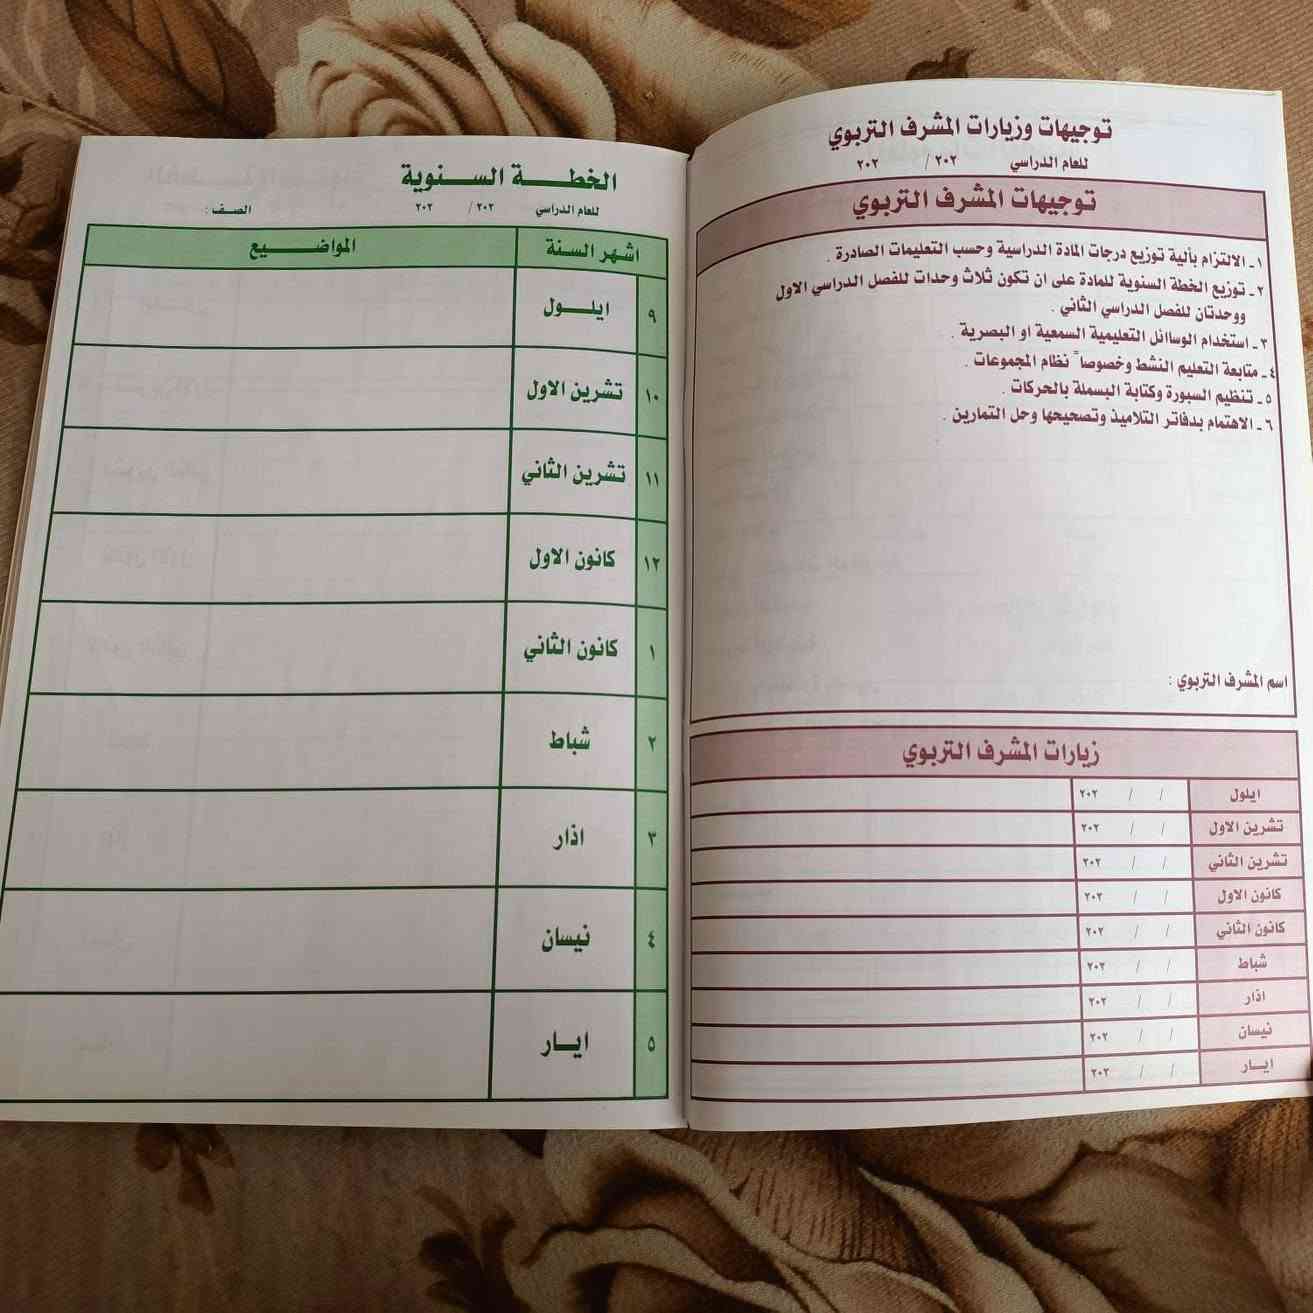 توجيهات وزيارات المشرف التربوي
للعام الدراسي ٢٠٢ / ٢٠٢
توجيهات المشرف التربوي
١ـ الالتزام بألية توزيع درجات المادة الدراسية وحسب التعليمات الصادرة .
٢ـ توزيع الخطة السنوية للمادة على ان تكون ثلاث وحدات للفصل الدراسي الاول
ووحدتان للفصل الدراسي الثاني .
٣ـ استخدام الوسائل التعليمية السمعية او البصرية .
٤ـ متابعة التعليم النشط وخصوصاً نظام المجموعات .
٥ـ تنظيم السبورة وكتابة البسملة بالحركات .
٦ـ الاهتمام بدفاتر التلاميذ وتصحيحها وحل التمارين .
اسم المشرف التربوي :
زيارات المشرف التربوي
ايلول / / ٢٠٢
تشرين الاول / / ٢٠٢
تشرين الثاني / / ٢٠٢
كانون الاول / / ٢٠٢
كانون الثاني / / ٢٠٢
شباط / / ٢٠٢
اذار / / ٢٠٢
نيسان / / ٢٠٢
ايـار / / ٢٠٢
الخطـــة الســـنوية
للعام الدراسي ٢٠٢ / ٢٠٢ الصف :
اشهر السنة المواضـــيع
٩ ايلـــول
١٠ تشرين الاول
١١ تشرين الثاني
١٢ كانون الاول
١ كانون الثاني
٢ شباط
٣ اذار
٤ نيسان
٥ ايـــار